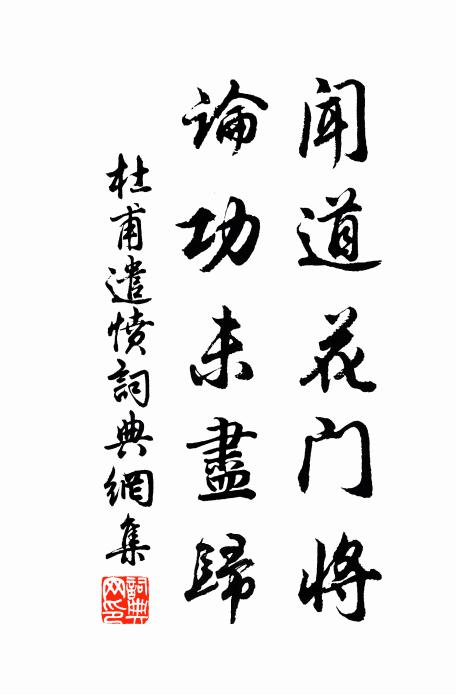 闻道花门将
论功未盡歸
杜甫遣愤詞典網集
詞典网印